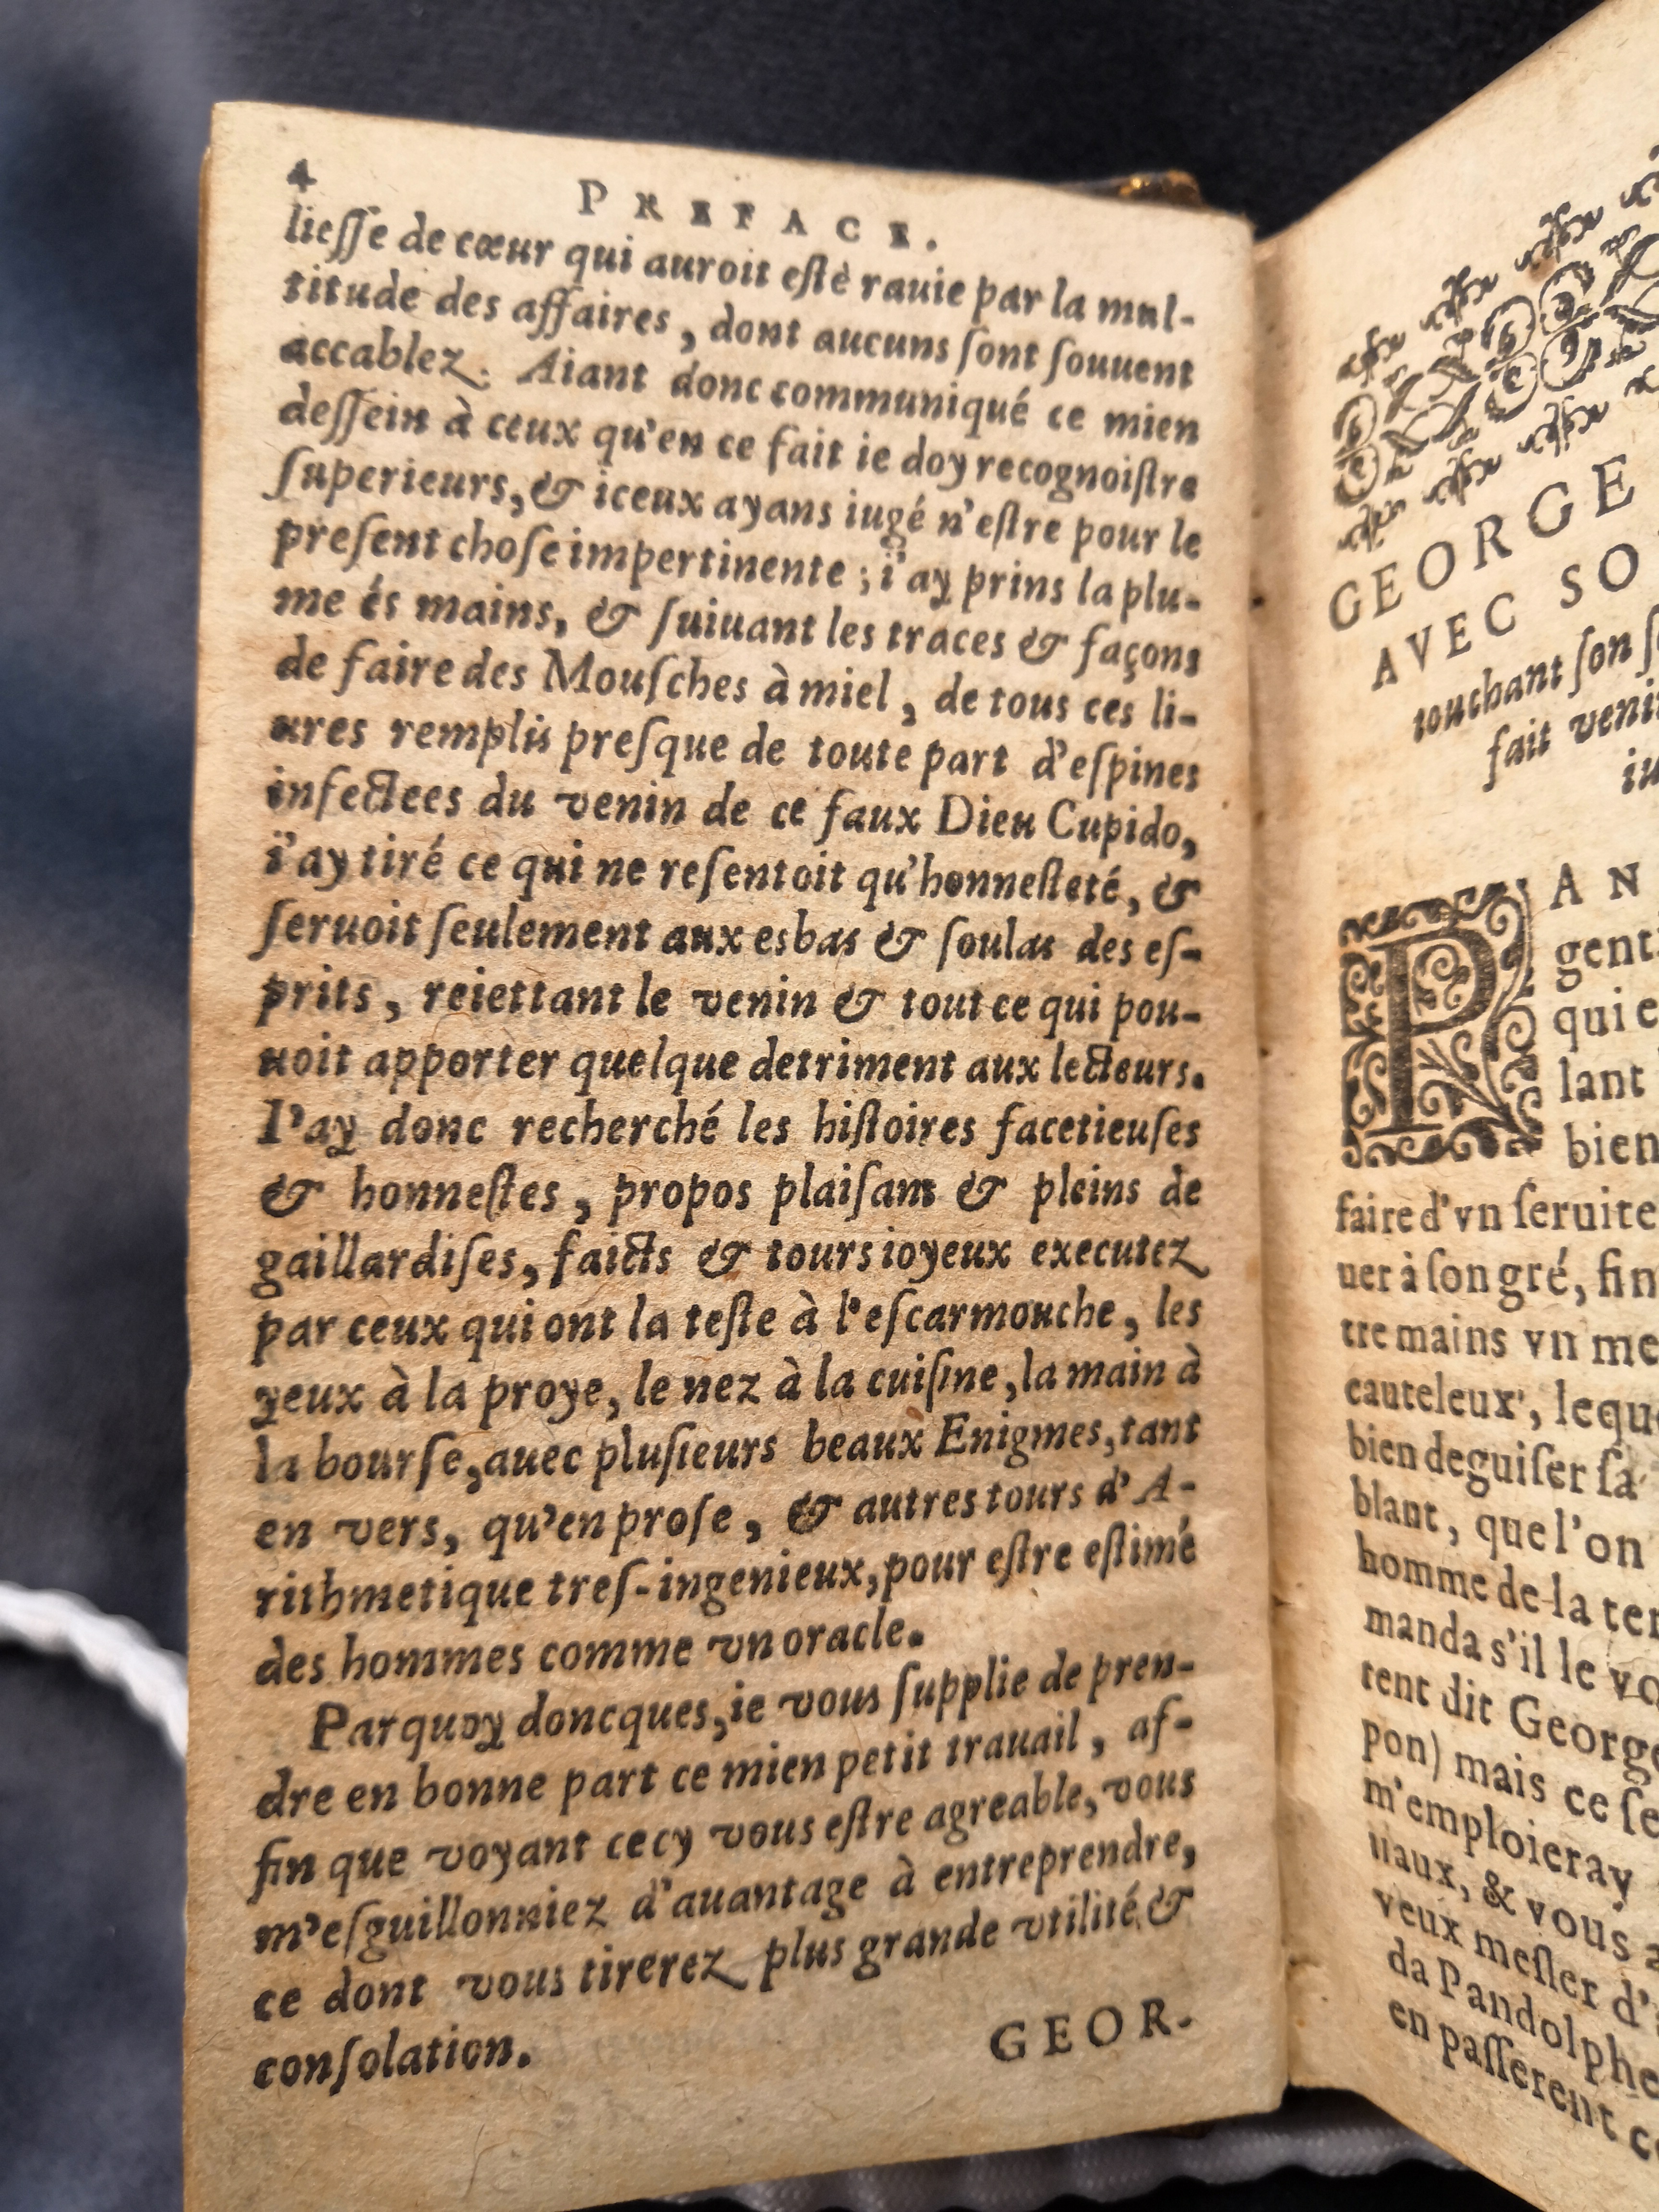 4
PREFACE.
lieſſe de cœur qui auroit eſté rauie par la mul-
titude des affaires, dont aucuns ſont ſouuent
accablez. Aiant donc communiqué ce mien
deſſein à ceux qu'en ce fait ie doy recognoiſtre
ſuperieurs, & iceux ayans iugé n'eſtre pour le
preſent choſe impertinente; i'ay prins la plu-
me és mains, & ſuiuant les traces & façons
de faire des Mouſches à miel, de tous ces li-
ures remplis preſque de toute part d'eſpines
infectees du venin de ce faux Dieu Cupido,
i'ay tiré ce qui ne reſentoit qu'honneſteté, &
ſeruoit ſeulement aux esbas & ſoulas des eſ-
prits, reiettant le venin & tout ce qui pou-
uoit apporter quelque detriment aux lecteurs.
I'ay donc recherché les hiſtoires facetieuſes
& honneſtes, propos plaiſans & pleins de
gaillardiſes, faicts & tours ioyeux executez
par ceux qui ont la teſte à l'eſcarmouche, les
yeux à la proye, le nez à la cuiſine, la main à
la bourſe, auec pluſieurs beaux Enigmes, tant
en vers, qu'en proſe, & autres tours d'A-
rithmetique treſ-ingenieux, pour eſtre eſtimé
des hommes comme vn oracle.
Parquoy doncques, ie vous ſupplie de pren-
dre en bonne part ce mien petit trauail, af-
fin que voyant cecy vous eſtre agreable, vous
m'eſguillonniez d'auantage à entreprendre,
ce dont vous tirerez plus grande vtilité &
conſolation.
GEOR-
GEORGE
AVEC SO
touchant ſon
fait veni
PAN
gent
qui e
lant
bien
faire d'vn ſeruite
uer à ſon gré, fin
tre mains vn me
cauteleux, leque
bien deguiſer ſa
blant, que l'on
homme de la ter
manda s'il le vo
tent dit George
pon) mais ce ſe
m'emploieray
uaux, & vous
veux meſler d'
da Pandolphe
en paſſerent c